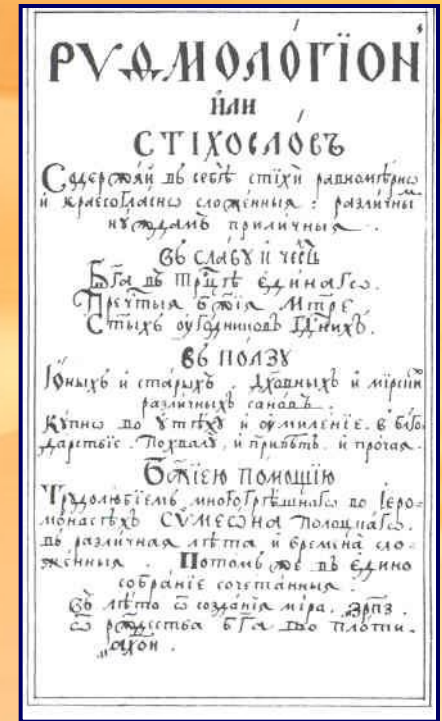 РѴѲМОЛО́ГЇОН
ИЛИ
СТІХОСЛОВЪ
Содержяй въ себѣ стїхи равномѣрнѡ
и краесогласнѡ сложенныя : различны
нуждамъ приличныя .
Въ славу и честь
Бга въ трцѣ єдинагѡ .
Пречтыя бжїя Мтре .
Стыхъ оугодниковъ Гднихъ .
Въ ползу
Юныхъ и старыхъ . Дховныхъ и мїрскй
различныхъ сановъ .
Купнѡ во утѣху и оумиленіе . в блго
дарствіе . Похвалу , и привѣтъ , и прочая .
Бжїею помощїю
Трудолюбіемъ многогрѣшнагѡ во Іеро-
монасѣхъ СѴМЕѠНА Полоцкагѡ .
въ различная лѣта и времена сло-
женныя . Потомъ же въ єдино
собранїе сочетанныя .
Въ лѣто ѿ созданїя міра . ЗРПЗ .
ѿ рждества Бга во плоти .
АХОИ .